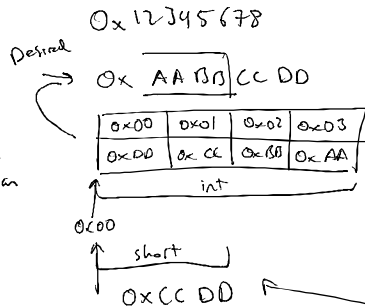 0x12345678
Desired
0x AA BB CC DD
0x00 0x01 0x02 0x03
0xDD 0xCC 0xBB 0xAA
an
int
0x00
short
0xCC DD